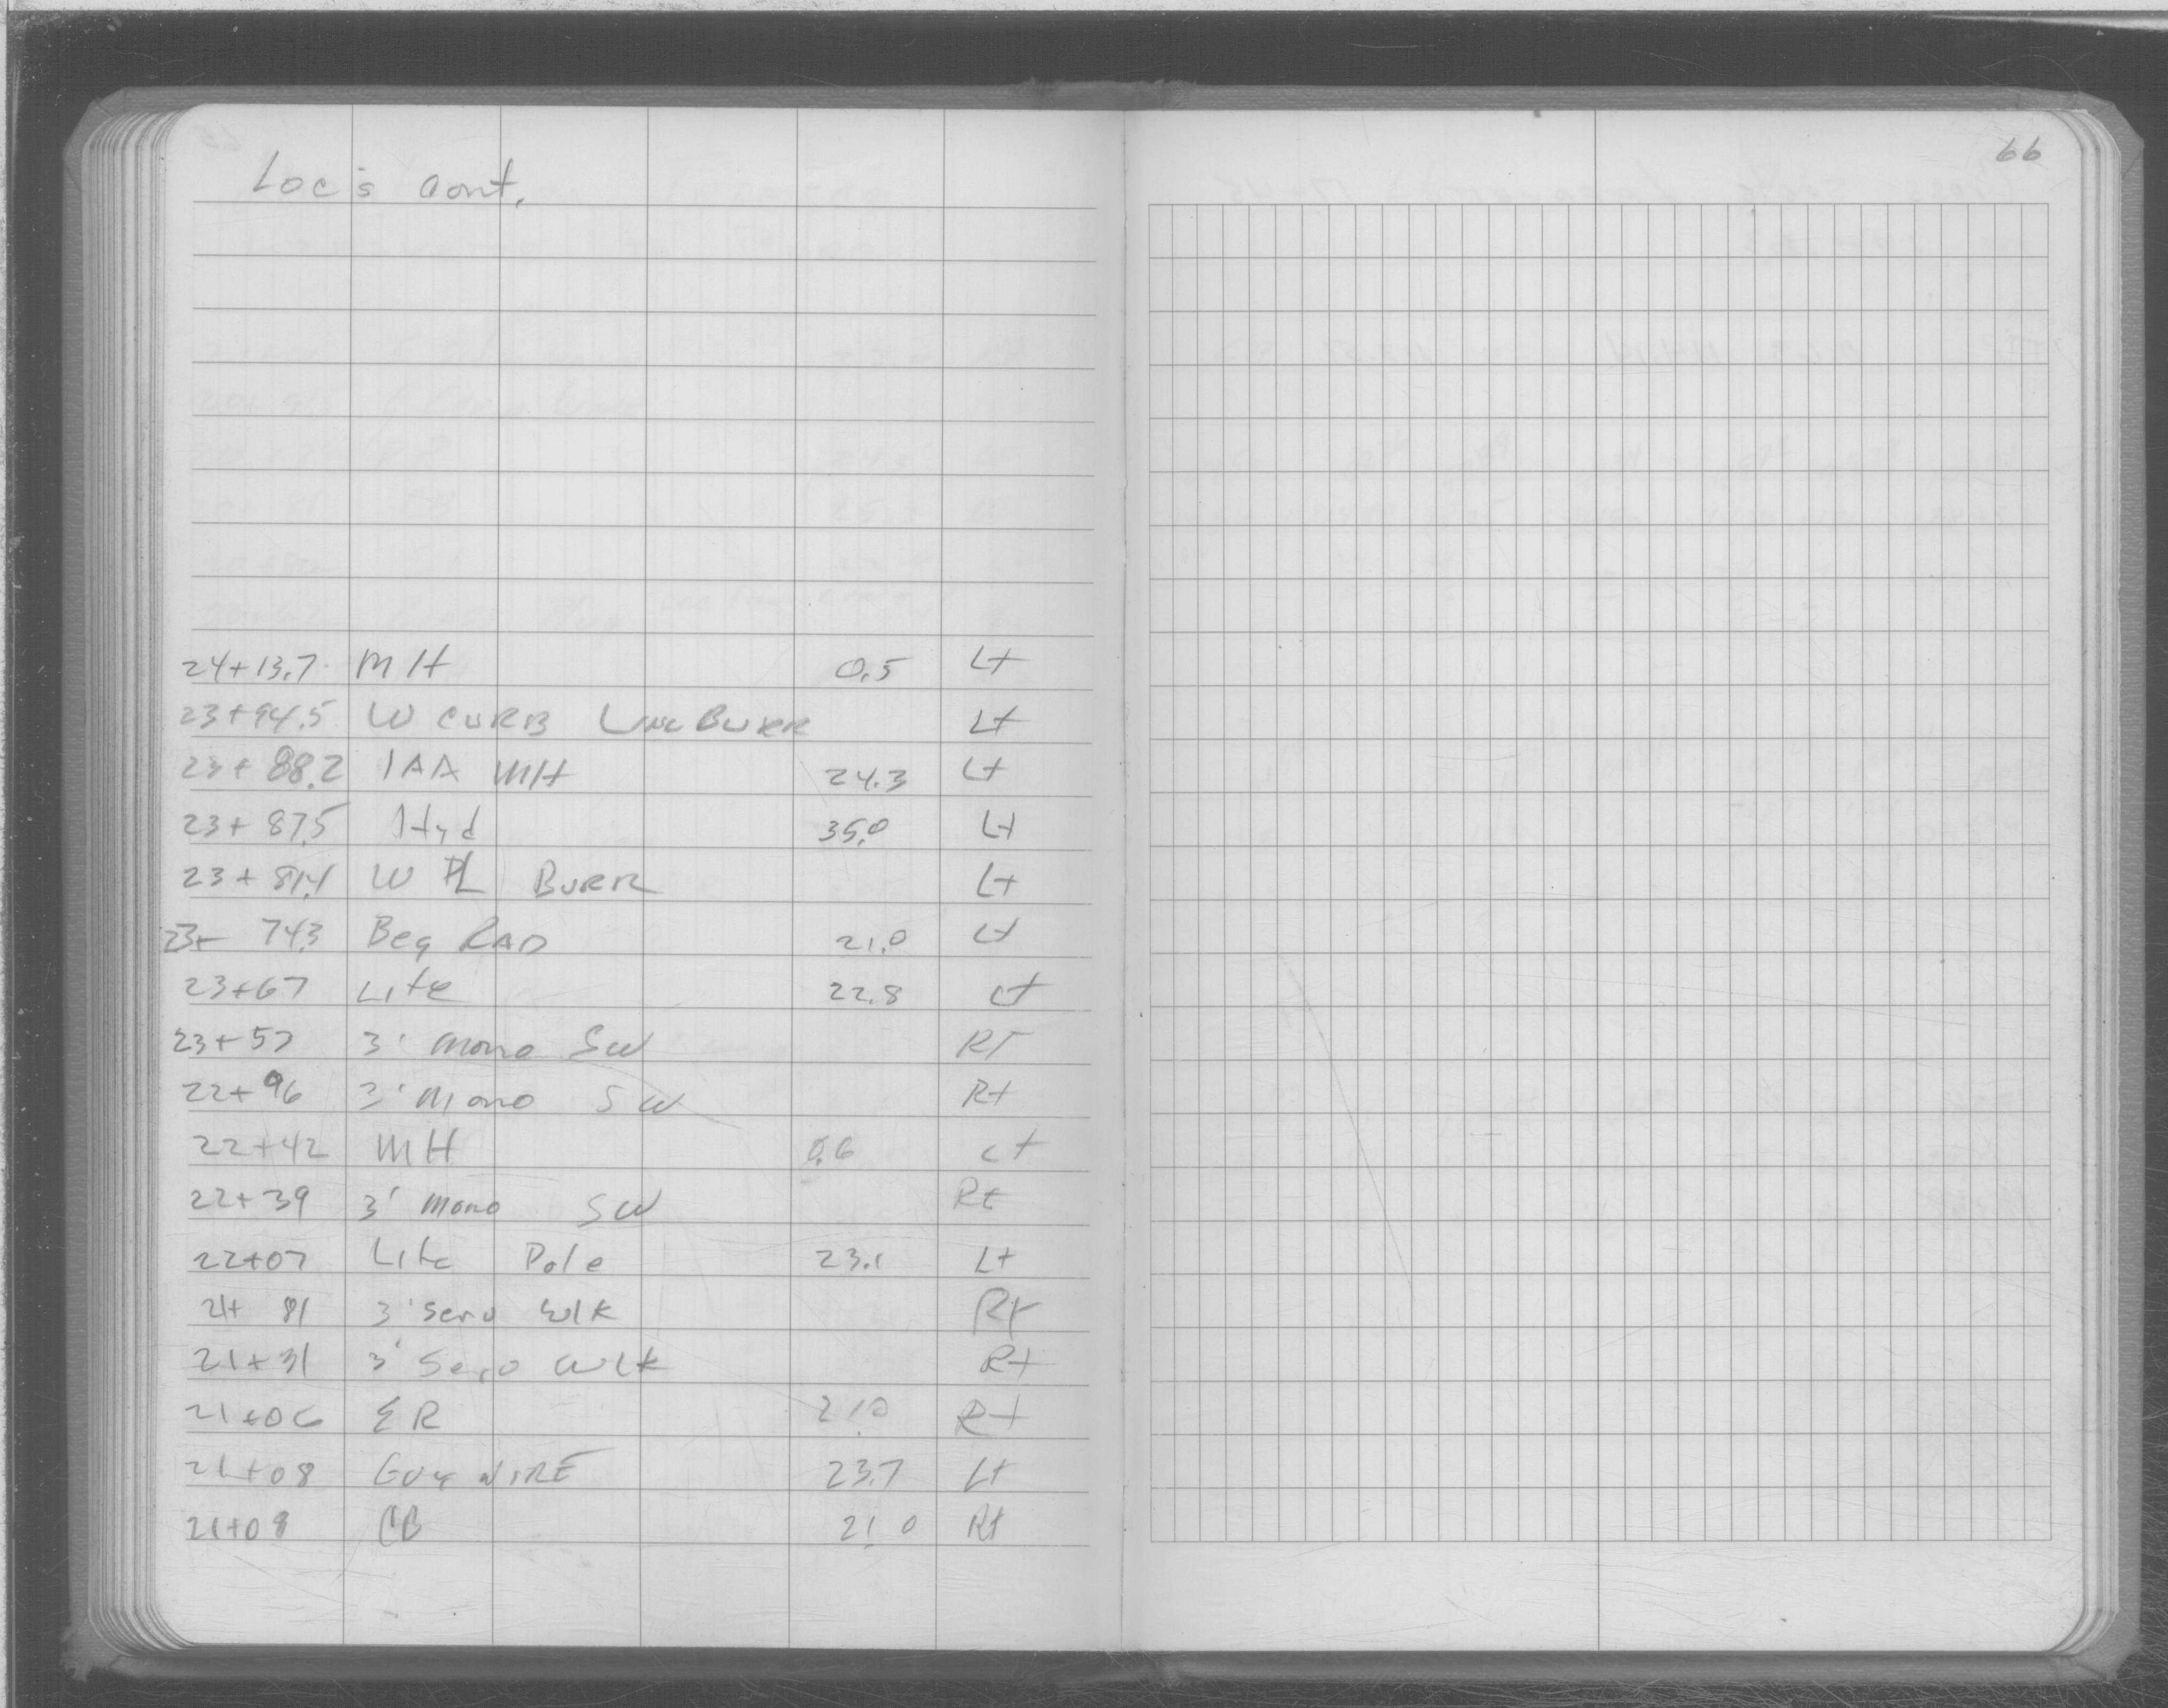 66
Loc's cont.
24+13.7 MH 0.5 Lt
23+94.5 W CURB Line BURR Lt
23+88.2 IAA MH 24.3 Lt
23+87.5 Hyd 35.0 Lt
23+81.4 W PL BURR Lt
23+74.3 Beg RAD 21.0 Lt
23+67 Lite 22.8 Lt
23+57 3' mono SW RT
22+96 3' mono SW Rt
22+42 MH 0.6 Lt
22+39 3' mono SW Rt
22+07 Lite Pole 23.1 Lt
21+81 3' Serv Wlk Rt
21+31 3' Serv Wlk Rt
21+06 ER 21.0 Rt
21+08 Guy WIRE 23.7 Lt
21+08 CB 21.0 Rt